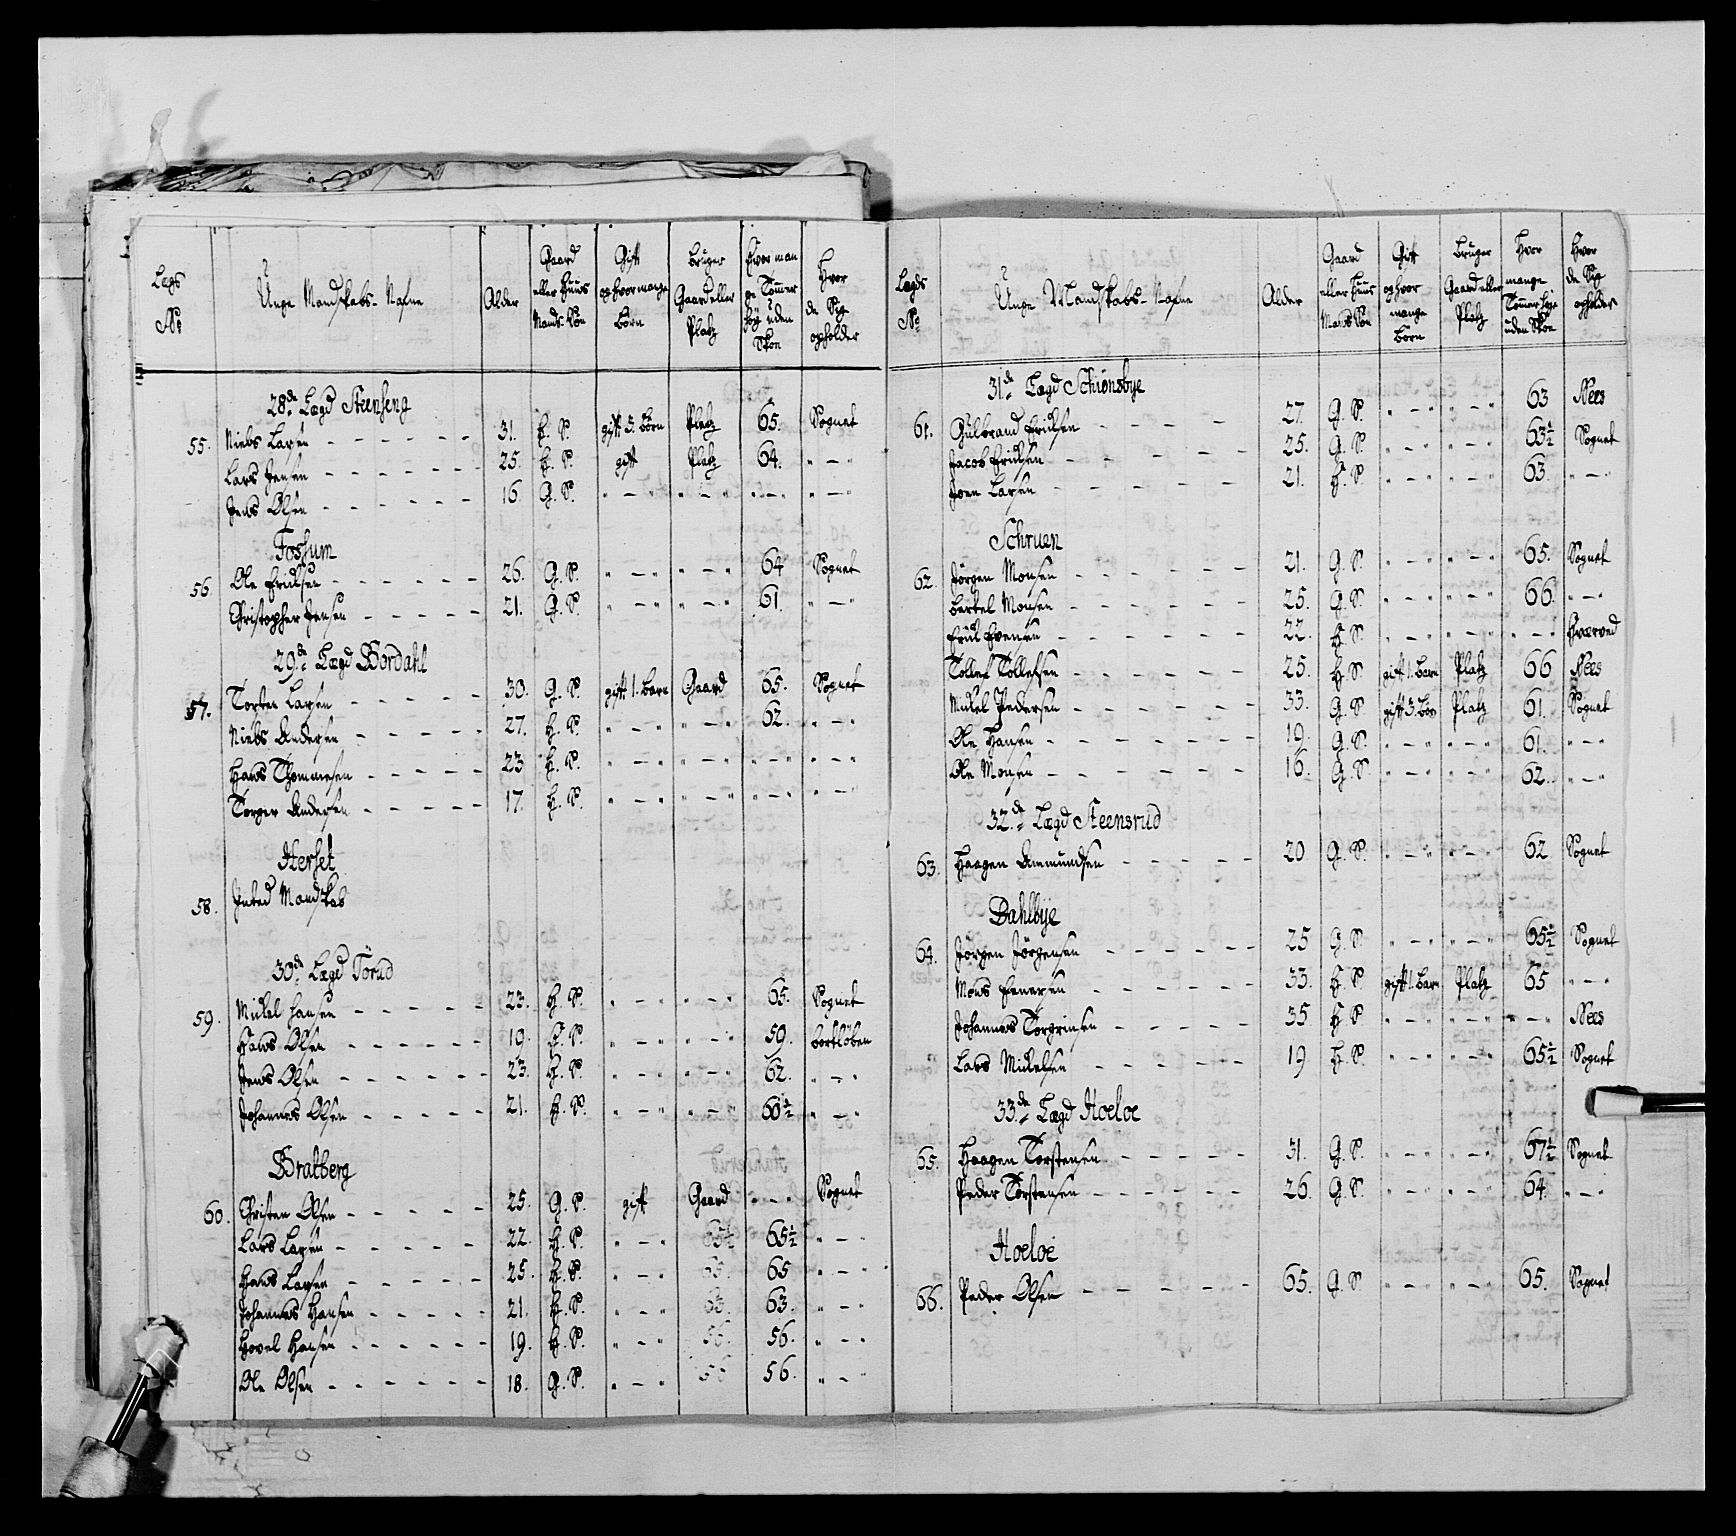 Lægs No | Unge Mandskabs-Nafne | Alder | Gaard eller Huus Mands Søn | Gift og hvor mange Börn | Bruger Gaard eller Platz | Hvor mange Tommer höy uden Skoe | Hvor de Sig opholder
28de Lægd Steenseng
55. Niels Larsen - - - 31. H. S. gift 3. Börn Platz 65. Sognet
Lars Jensen - - - 25. H. S. gift Platz 64. " - "
Jens Olsen - - - 16. G. S. " - " " - " " - " " - "
Foshum
56. Ole Erichsen - - - 26. G. S. " - " " - " 64 Sognet
Christopher Jensen - - - 21. G. S. " - " " - " 61. " - "
29de Lægd Bordahl
57. Torsten Larsen - - - 30. G. S. gift 1. Barn Gaard 65. Sognet
Niels Andersen - - - 27. H. S. " - " " - " 62. " - "
Hans Thommesen - - - 23 H. S. " - " " - " " - " " - "
Torger Andersen - - - 17. H. S. " - " " - " " - " " - "
Herset
58. Inted Mandskab
30de Lægd Törud
59. Mickel Hansen - - - 23. H. S. " - " " - " 65. Sognet
Hans Olsen - - - 19. H. S. " - " " - " 59. bortlöben
Jens Olsen - - - 23. H. S. " - " " - " 62. " - "
Johannes Olsen - - - 21. H. S. " - " " - " 60½ " - "
Bratberg
60. Christen Olsen - - - 25. G. S. gift Gaard " - " Sognet
Lars Larsen - - - 22. H. S. " - " 65½ 65½ " - "
Hans Larsen - - - 25. H. S. " - " 65. 65 " - "
Johannes Hansen - - - 21. H. S. " - " 63. 63. " - "
Hovel Hansen - - - 19. H. S. " - " 56. 56. " - "
Ole Olsen - - - 18. G. S. " - " 56 56. " - "
Lægds No | Unge Mandskabs-Nafne | Alder | Gaard eller Huus Mands Søn | Gift og hvor mange Börn | Bruger Gaard eller Platz | Hvor mange Tommer höye uden Skoe | Hvor de Sig opholder
31de Lægd Schiönsbye
61. Gulbrand Erichsen - - - 27. G. S. " - " " - " 63 Nees
Jacob Erichsen - - - 25. G. S. " - " " - " 63½ Sognet
Joen Larsen - - - 21. H. S. " - " " - " 63 " - "
Schruen
62. Jörgen Monsen - - - 21. G. S. " - " " - " 65. Sognet
Bertel Monsen - - - 25. G. S. " - " " - " 66. " - "
Erich Evensen - - - 22. H. S. " - " " - " " - " Hværved
Tollef Tollefsen - - - 25. H. S gift 1. Barn Platz 66 Nees
Mickel Pedersen - - - 33. G. S gift 3. Bör Platz 61. Sognet
Ole Hansen - - - 19. G. S. " - " " - " 61. " - "
Ole Monsen - - - 16. G. S " - " " - " 62. " - "
32de Lægd Steensrud
63. Haagen Ammundsen - - - 20 G. S. " - " " - " 62 Sognet
Dahlbye
64. Jörgen Jörgensen - - - 25 G. S. " - " " - " 65½ Sognet
Mons Enersen - - - 33. H. S gift 1. Barn Platz 65 " - "
Johannes Torgrinsen - - - 35 H. S " - " " - " " - " Nees
Lars Mickelsen - - - 19 H. S. " - " " - " 65½ Sognet
33de Lægd Hoeloe
65. Haagen Torstensen - - - 31. G. S. " - " " - " 67½ Sognet
Peder Torstensen - - - 26. G. S. " - " " - " 64. " - "
Hoeloe
66. Peder Olsen - - - 65. G. S " - " " - " 65. Sognet